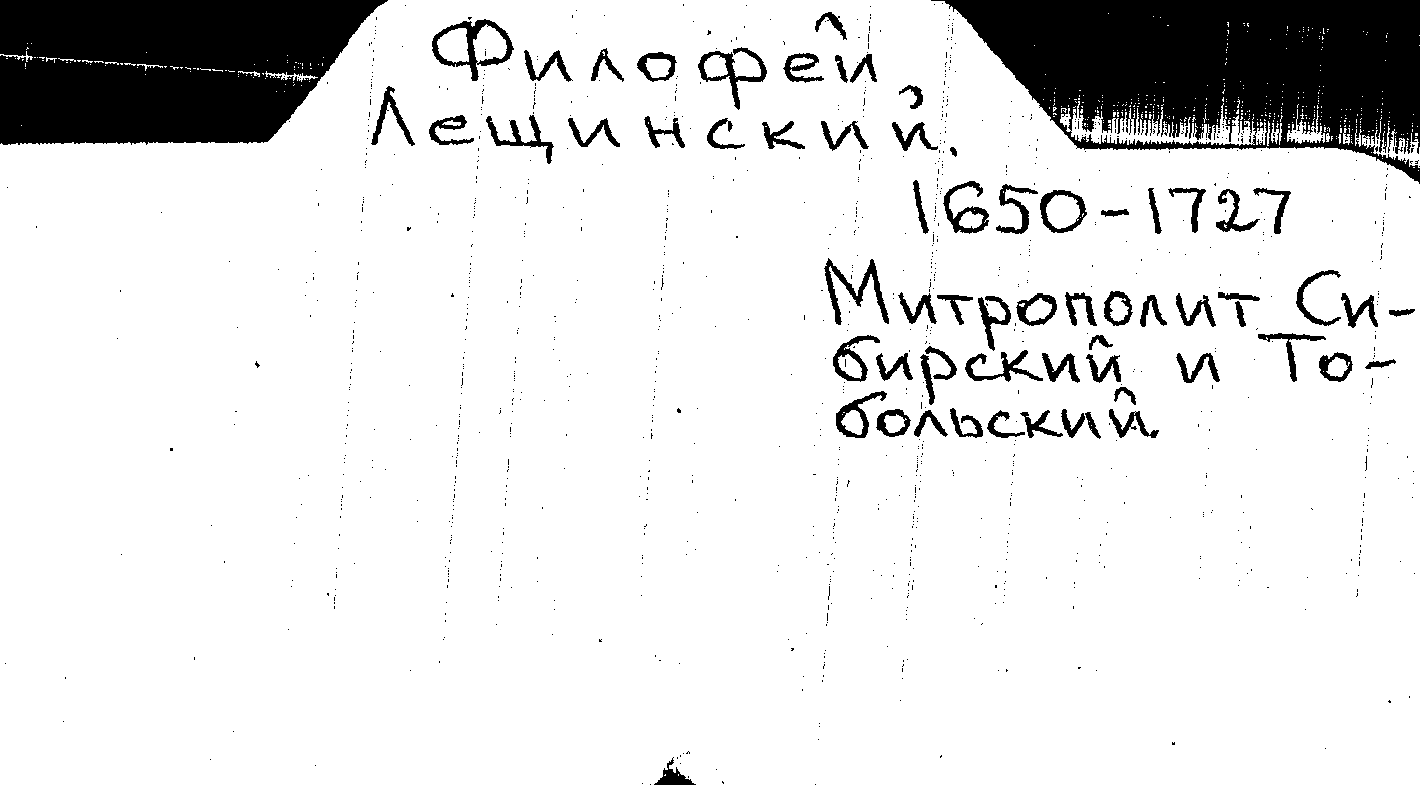 Филофей
Лещинский.
1650-1727
Митрополит Си-
бирский и То-
больский.